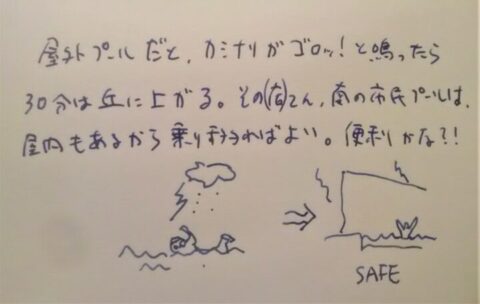 屋外プールだと、カミナリがゴロッ!と鳴ったら
30分は丘に上がる。その(点)てん、南の市民プールは、
屋内もあるから乗り移ればよい。便利かな?!
SAFE